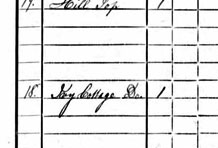 17. Hill Top 1
18. Key Cottage Do. 1